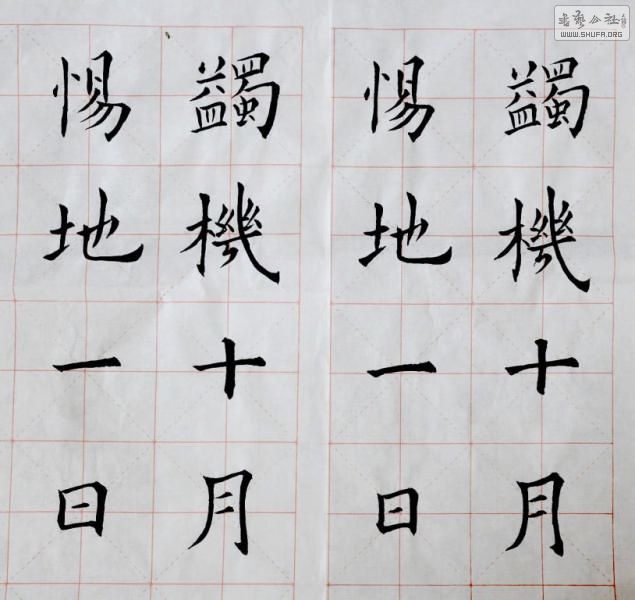 蠲機十月
惕地一日
蠲機十月
惕地一日
WWW.SHUFA.ORG